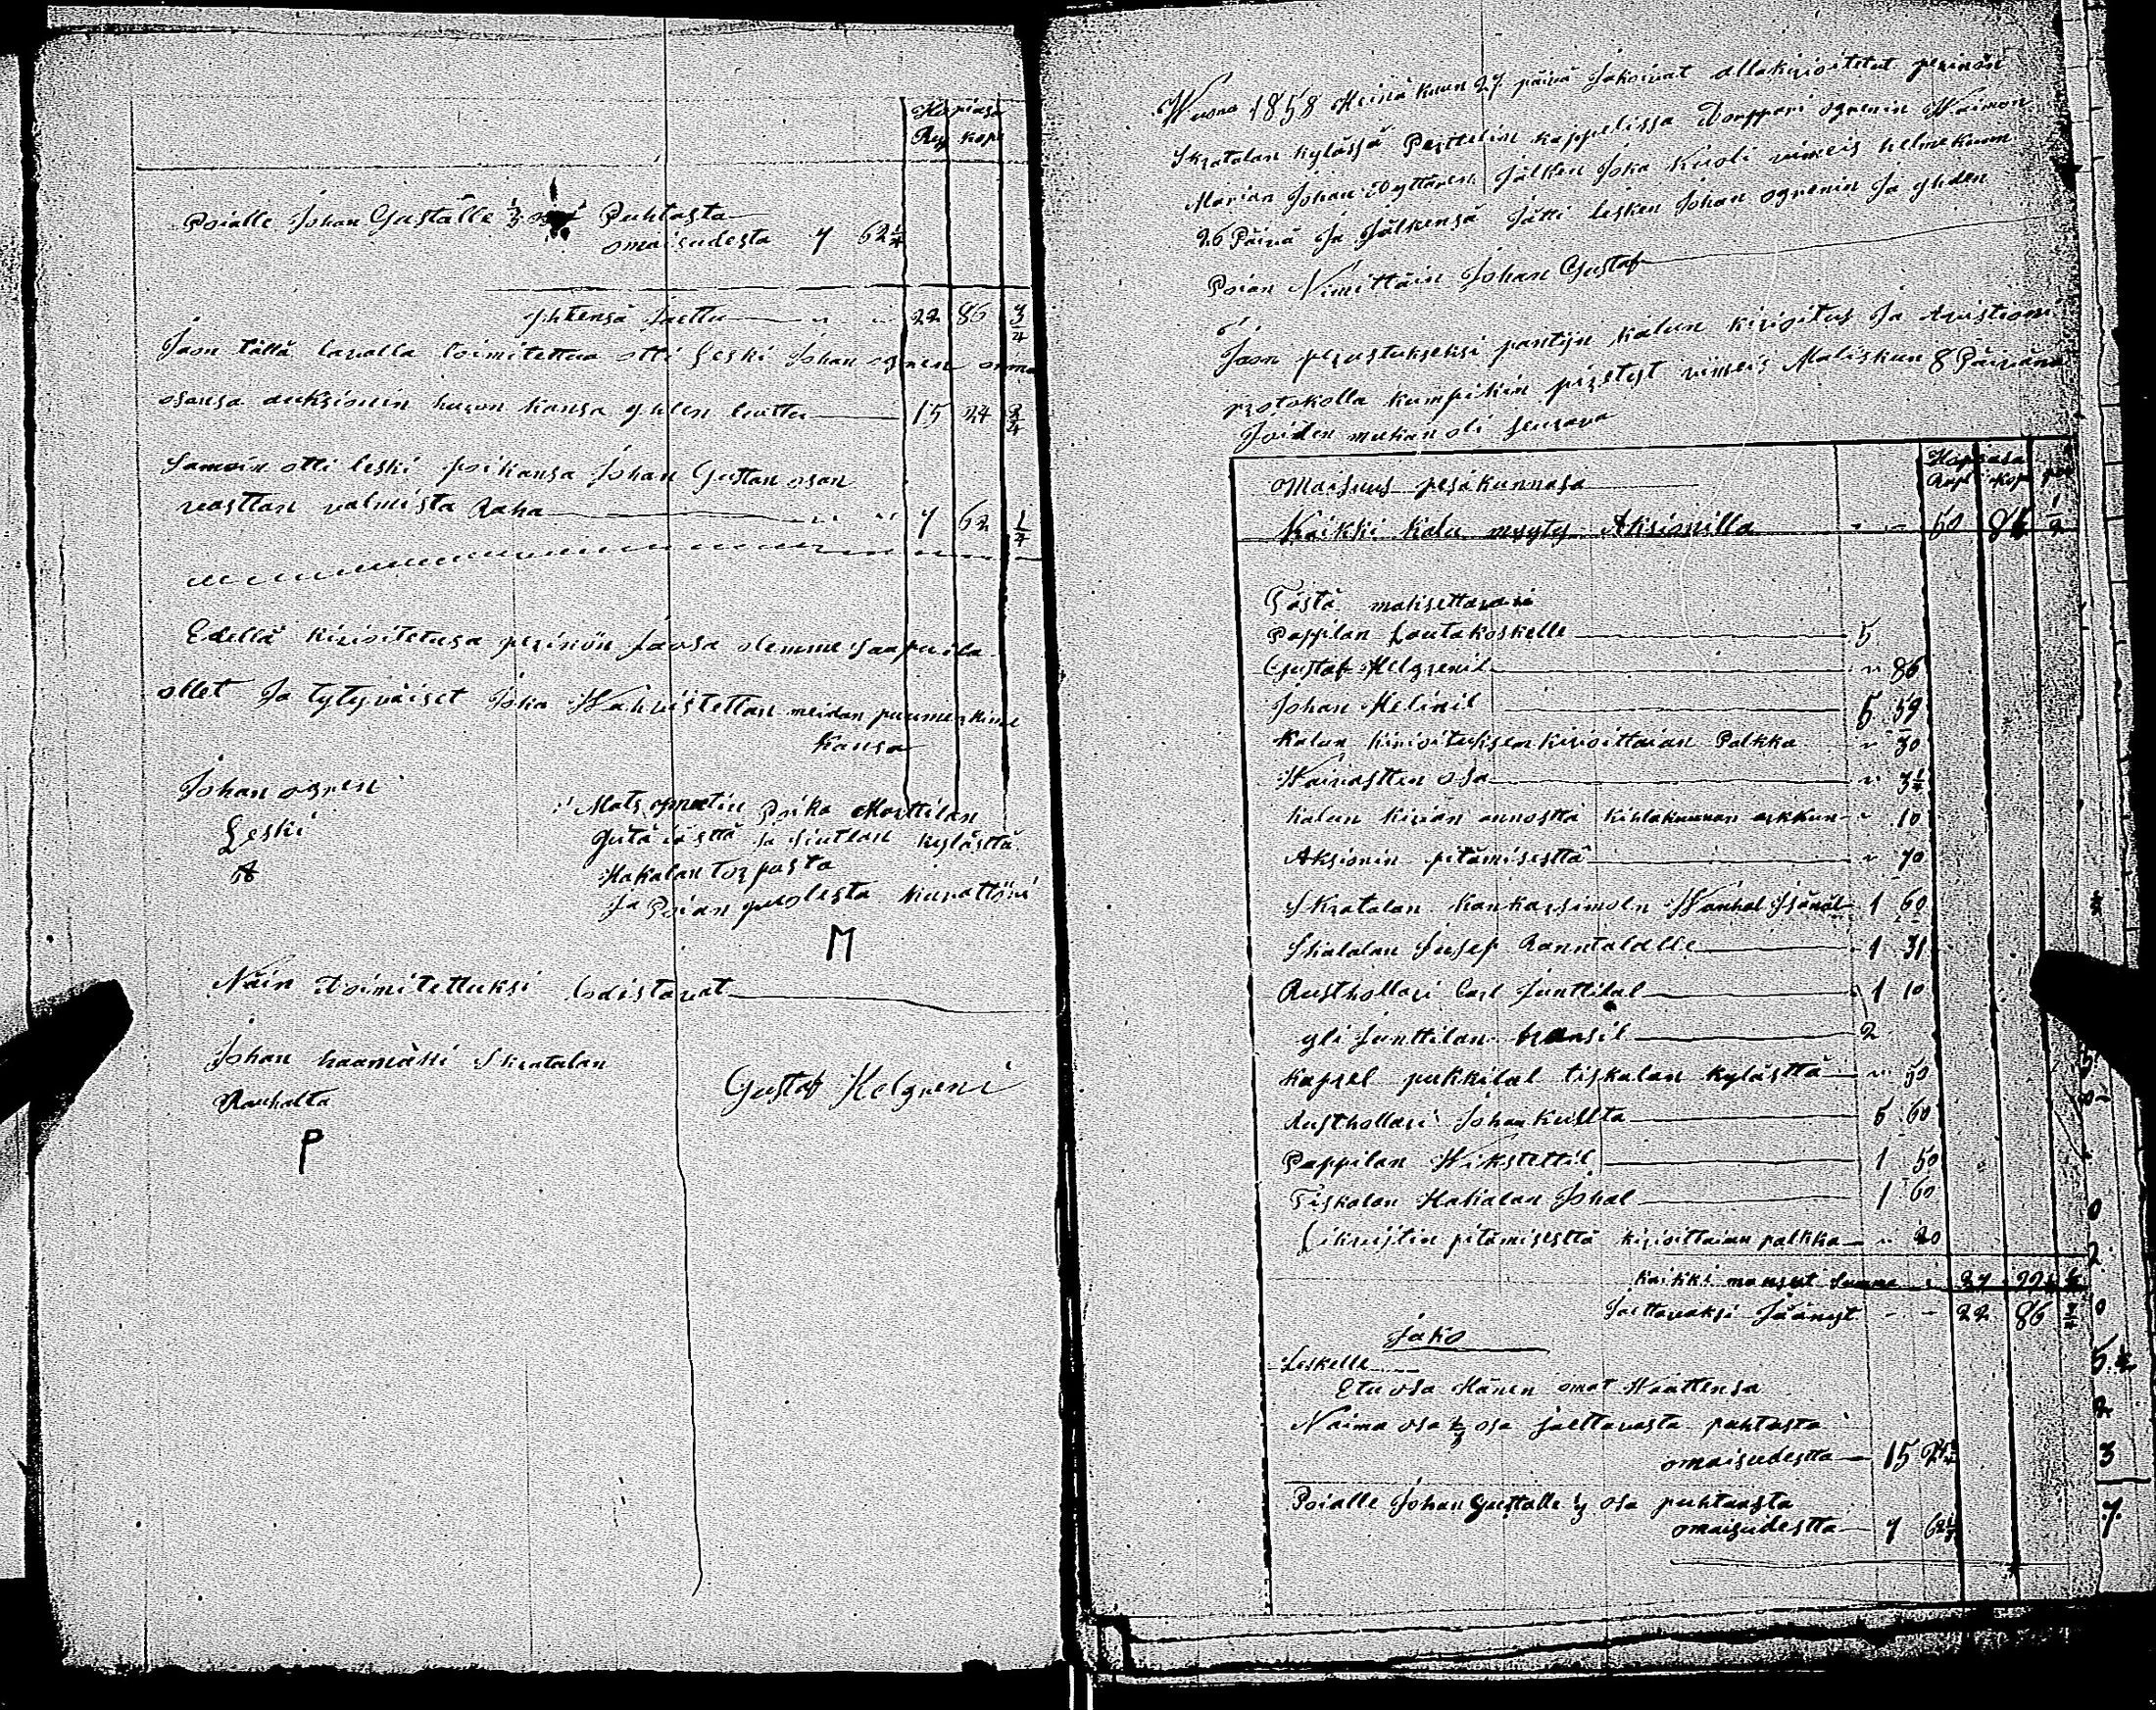 Hopiasa
Rup kope
Poialle Johan Gustalle 1/3 osa Puhtasta
omaisudesta 7 62 1/4
yhtensä Jaettu 22 86 3/4
Jaon tällä tavalla toimitettua otti Leski Johan ogren oma
osansa auksionin huron kansa yhten luettu 15 24 2/4
Samoin otti leski poikansa Johan Gustan osan
vasttan valmista Raha 7 62 1/4
Edellä kirioitetusa perinön Jaosa olemme saapuila
ollet Ja tytyväiset Joka Wahvistettan meidan puumerkime
kansa
Johan ogren
Leski
Mats Poika Marttilan
ja kylästtä
Hakalan torpasta
Ja Poian puolesta
M
Näin toimitetuksi todistavat
Johan haamäki Skratalan
Rauhalta
Gustaf Helgreni
P
Wuona 1858 Heinä kuun 27 päivä Jakoivat allakirioitetut perinön
Skratalan kylässä Perttelin kappelissa torppari ogrenin Waimon
Marian Johan Tyttären Jälken Joka kuoli viimeis helmekuun
26 Päivä Ja Jälkensä Jätti lesken Johan ogrenin Ja yhden
Poian Nimittäin Johan Gustaf
Jaon perustukseksi pantijn kalun kirioitus Ja Auistioni
protokolla kumpikin pizetyt viimeis Maliskun 8 Päivänä
Joiden mukan oli seurava
Hopiasa
Rupl kop
omaisuus pesäkunnasa
Kaikki kalu myyty Aksionilla 50 86 1/2
Tästä maksettavaxi
Pappilan Lautakoskelle 5
Gustaf Helgrenil 86
Johan Melinil 5 59
Kalun kirioituksen kirioittaian Palkka 30
Waivastten osa 3 1/4
kalun kirian annostta kihlakunnan arkkun 10
Aksionin pitämisesttä 70
Skratalan kankarsimoln Wanhal Isänäl 1 60
Skatalan Jusef Ranntalalle 1 31
Rusthollari Carl Junttilal 1 10
yli Junttilan 2
kapsel pukkilal tiskalan kylästtä 50
Rusthollari Johan kullta 5 60
Pappilan Wikstettil 1 50
Tiskalan Hakalan Johal 1 60
pitämisesttä kirioittaian palkka 20
kaikki maksut Summa 27 99
Jaettavaksi Jäänyt 22 86 3/4
Jako
Leskelle
Etu osa Hänen omat Waattensa
Naima osa 2/3 osa jaettavasta puhtasta
omaisudestta 15 24 2/4
Poialle Johan Gustalle 1/3 osa puhtaasta
omaisudestta 7 62 1/4